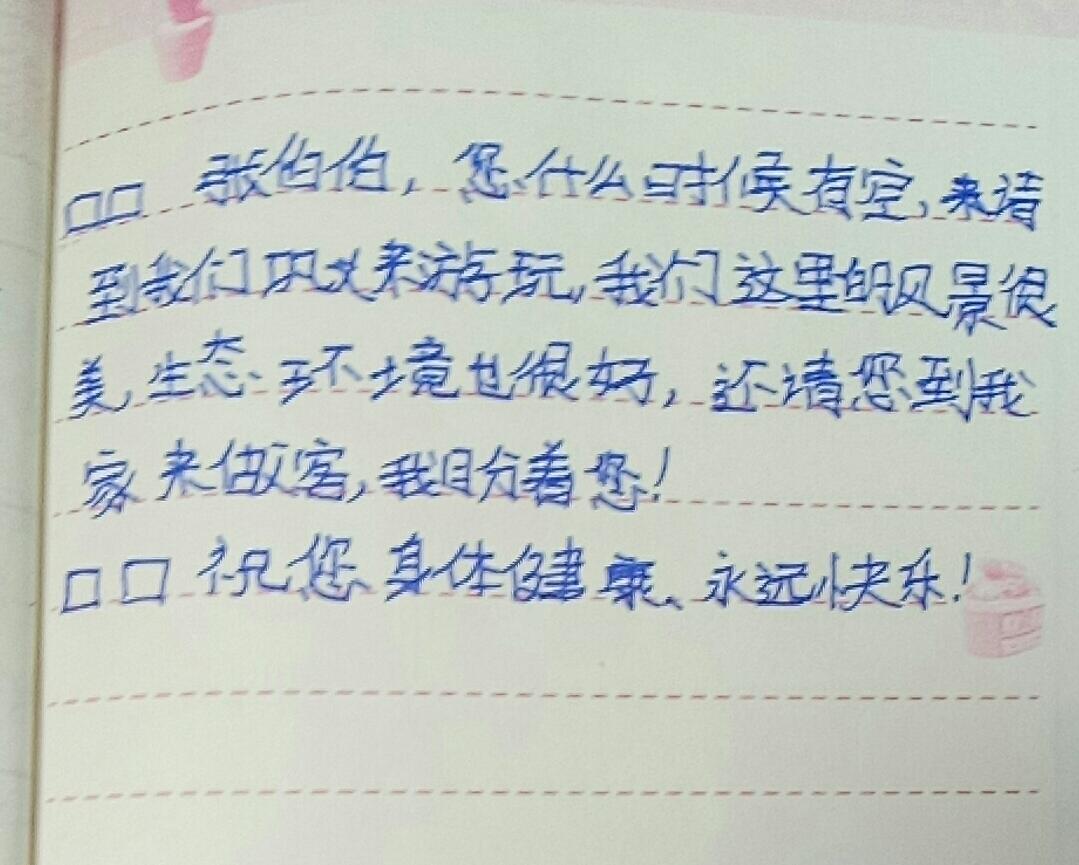 □□ 张伯伯,您什么时候有空,来请
到我们巩义来游玩,我们这里的风景很
美,生态环境也很好,还请您到我
家来做客,我盼着您!
□□ 祝您身体健康、永远快乐!